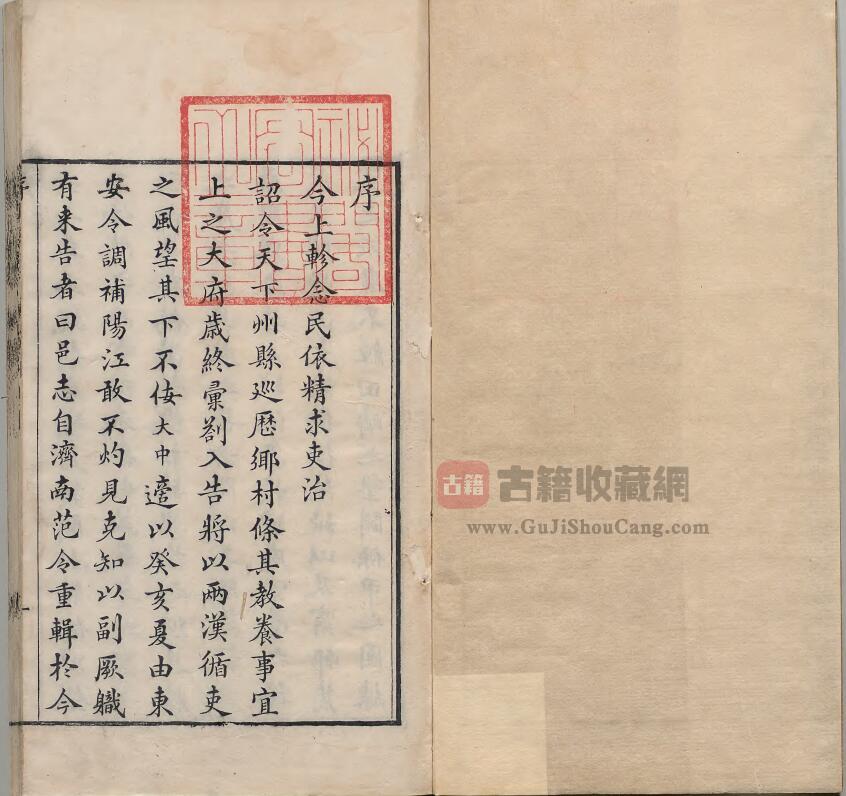 序
今上軫念民依精求吏治
詔令天下州縣巡歷鄉村條其教養事宜
上之大府歲終彙劄入告將以兩漢循吏
之風望其下不佞大中適以癸亥夏由東
安令調補陽江敢不灼見克知以副厥職
有来告者曰邑志自濟南范令重輯於今
序
一
古籍
古籍收藏網
www.GuJiShouCang.com